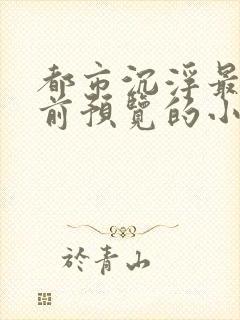 都市沉浮最
前預覽的小
於青山